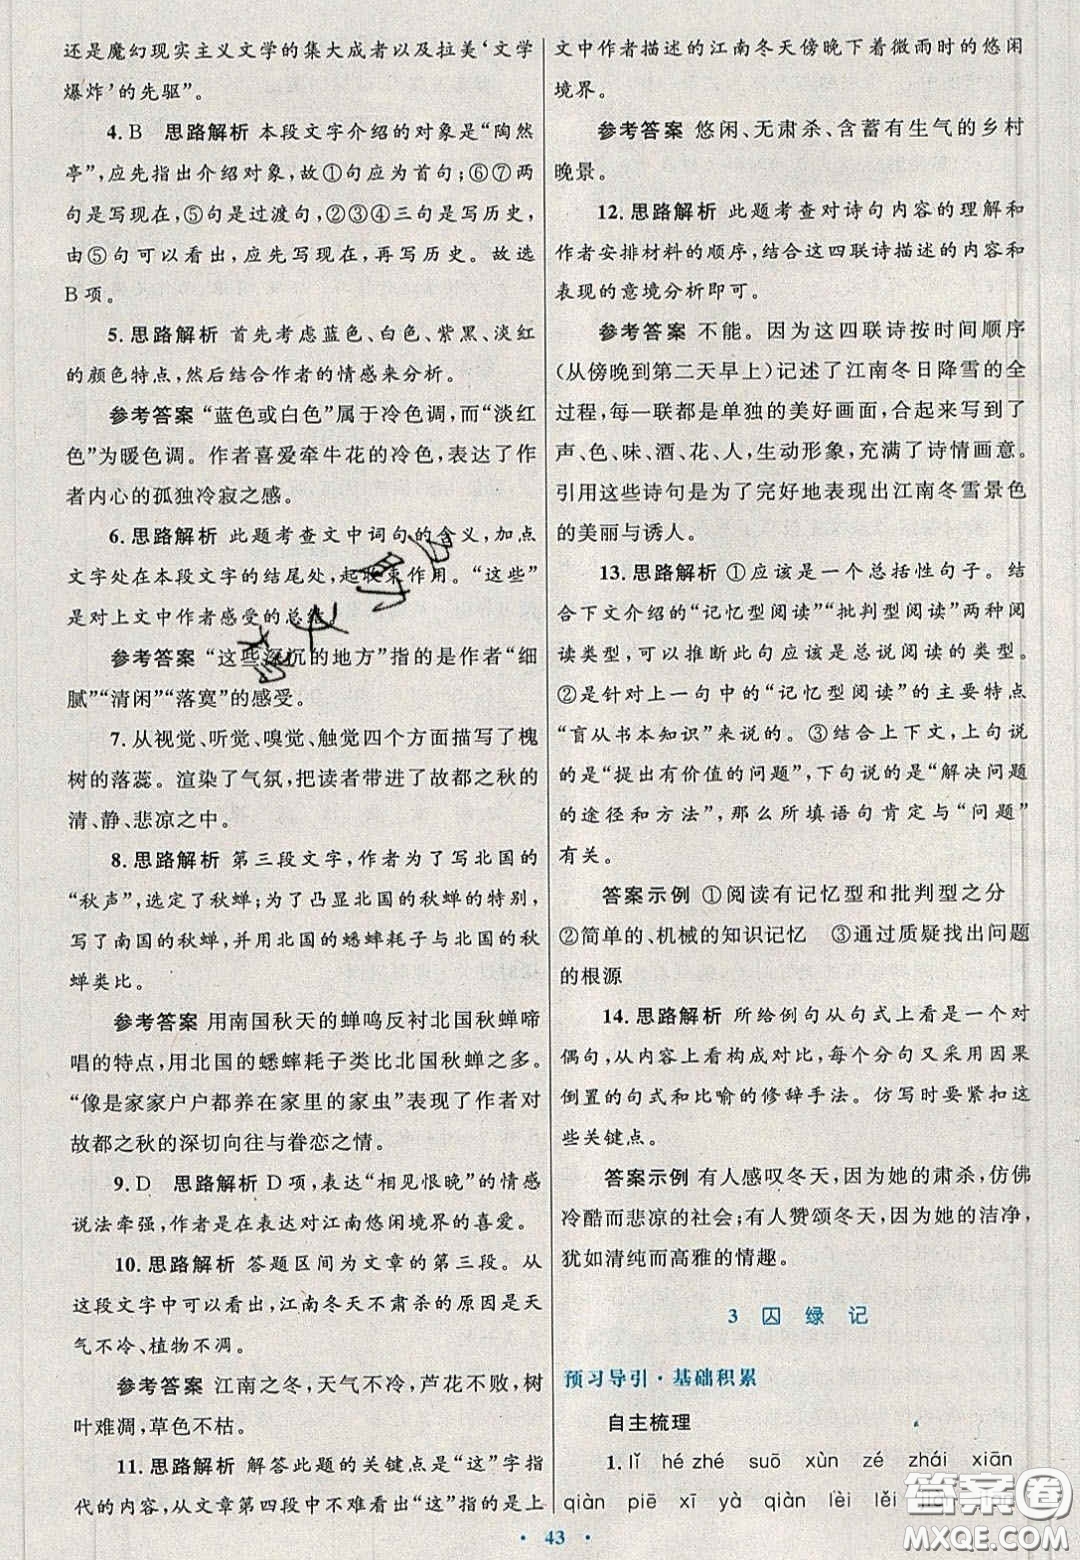 还是魔幻现实主义文学的集大成者以及拉美‘文学
爆炸’的先驱”。
4. B　思路解析 本段文字介绍的对象是“陶然
亭”,应先指出介绍对象,故①句应为首句;⑥⑦两
句是写现在,⑤句是过渡句,②③④三句是写历史,
由⑤句可以看出,应先写现在,再写历史。故选
B 项。
5. 思路解析 首先考虑蓝色、白色、紫黑、淡红
的颜色特点,然后结合作者的情感来分析。
参考答案 “蓝色或白色”属于冷色调,而“淡红
色”为暖色调。作者喜爱牵牛花的冷色,表达了作
者内心的孤独冷寂之感。
6. 思路解析 此题考查文中词句的含义,加点
文字处在本段文字的结尾处,起收束作用。“这些”
是对上文中作者感受的总结。
参考答案 “这些深沉的地方”指的是作者“细
腻”“清闲”“落寞”的感受。
7. 从视觉、听觉、嗅觉、触觉四个方面描写了槐
树的落蕊。渲染了气氛,把读者带进了故都之秋的
清、静、悲凉之中。
8. 思路解析 第三段文字,作者为了写北国的
“秋声”,选定了秋蝉;为了凸显北国的秋蝉的特别,
写了南国的秋蝉,并用北国的蟋蟀耗子与北国的秋
蝉类比。
参考答案 用南国秋天的蝉鸣反衬北国秋蝉啼
唱的特点,用北国的蟋蟀耗子类比北国秋蝉之多。
“像是家家户户都养在家里的家虫”表现了作者对
故都之秋的深切向往与眷恋之情。
9. D　思路解析 D 项,表达“相见恨晚”的情感
说法牵强,作者是在表达对江南悠闲境界的喜爱。
10. 思路解析 答题区间为文章的第三段。从
这段文字中可以看出,江南冬天不肃杀的原因是天
气不冷、植物不凋。
参考答案 江南之冬,天气不冷,芦花不败,树
叶难凋,草色不枯。
11. 思路解析 解答此题的关键点是“这”字指
代的内容,从文章第四段中不难看出“这”指的是上
文中作者描述的江南冬天傍晚下着微雨时的悠闲
境界。
参考答案 悠闲、无肃杀、含蓄有生气的乡村
晚景。
12. 思路解析 此题考查对诗句内容的理解和
作者安排材料的顺序,结合这四联诗描述的内容和
表现的意境分析即可。
参考答案 不能。因为这四联诗按时间顺序
(从傍晚到第二天早上)记述了江南冬日降雪的全
过程,每一联都是单独的美好画面,合起来写到了
声、色、味、酒、花、人,生动形象,充满了诗情画意。
引用这些诗句是为了完好地表现出江南冬雪景色
的美丽与诱人。
13. 思路解析 ①应该是一个总括性句子。结
合下文介绍的“记忆型阅读”“批判型阅读”两种阅
读类型,可以推断此句应该是总说阅读的类型。
②是针对上一句中的“记忆型阅读”的主要特点
“盲从书本知识”来说的。③结合上下文,上句说
的是“提出有价值的问题”,下句说的是“解决问题
的途径和方法”,那么所填语句肯定与“问题”
有关。
答案示例 ①阅读有记忆型和批判型之分
②简单的、机械的知识记忆　③通过质疑找出问题
的根源
14. 思路解析 所给例句从句式上看是一个对
偶句,从内容上看构成对比,每个分句又采用因果
倒置的句式和比喻的修辞手法。仿写时要紧扣这
些关键点。
答案示例 有人感叹冬天,因为她的肃杀,仿佛
冷酷而悲凉的社会;有人赞颂冬天,因为她的洁净,
犹如清纯而高雅的情趣。
3　囚　绿　记
预习导引·基础积累
自主梳理
1. lǐ hé zhé suō xùn zé zhái xiān
qiàn piē xī yà qiàn lèi lěi
· 43 ·
答案卷
MXQE.COM